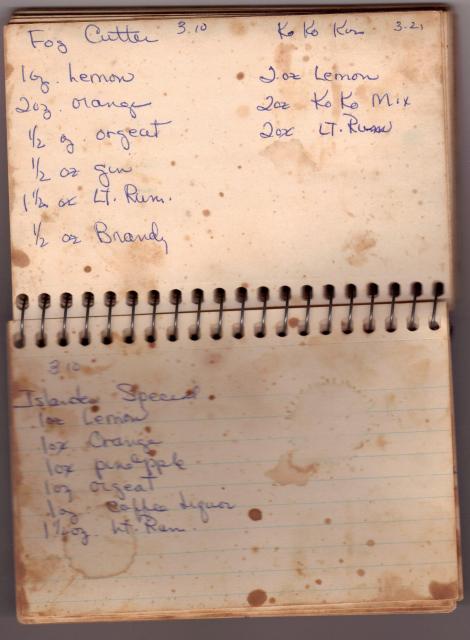 Fog Cutter 3.10
1oz. Lemon
2oz. orange
1/2 oz orgeat
1/2 oz gin
1 1/2 oz LT. Rum.
1/2 oz Brandy
Ko Ko Kow 3.21
2 oz Lemon
2oz Ko Ko Mix
2oz LT. Rum
3.10
Islander Special
1oz Lemon
1oz Orange
1oz pineapple
1oz orgeat
1oz coffee Liquor
1 1/2 oz Lt. Rum.